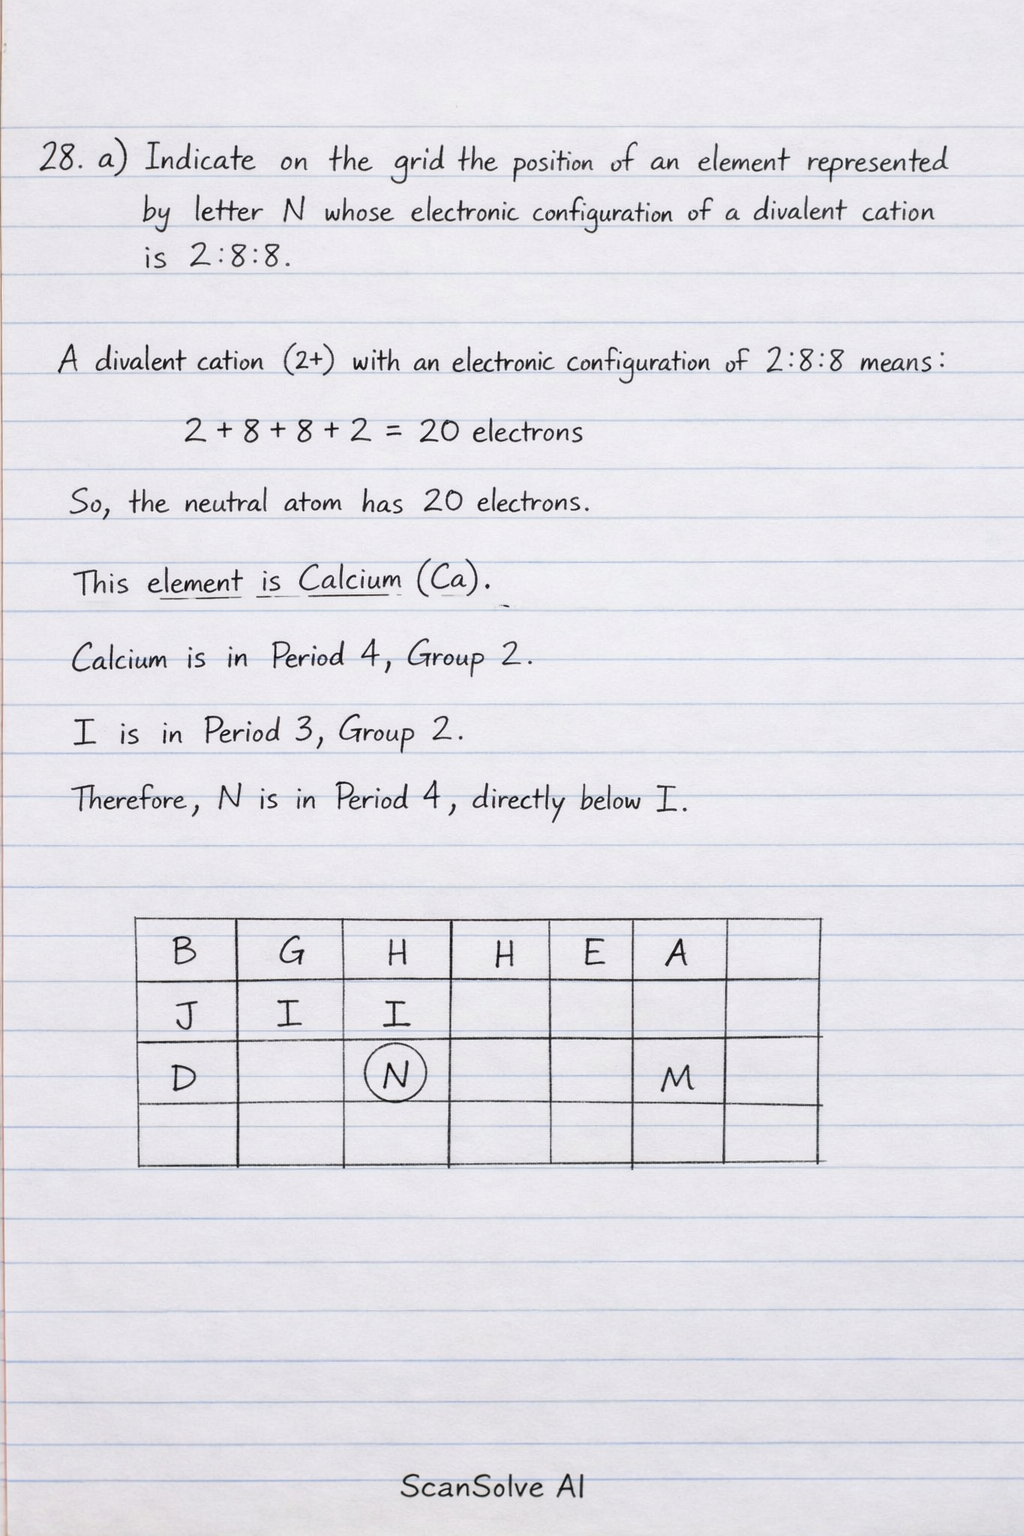 28. a) Indicate on the grid the position of an element represented
by letter N whose electronic configuration of a divalent cation
is 2:8:8.
A divalent cation (2+) with an electronic configuration of 2:8:8 means:
2 + 8 + 8 + 2 = 20 electrons
So, the neutral atom has 20 electrons.
This element is Calcium (Ca).
Calcium is in Period 4, Group 2.
I is in Period 3, Group 2.
Therefore, N is in Period 4, directly below I.
B G H H E A
J I I
D N M
ScanSolve AI